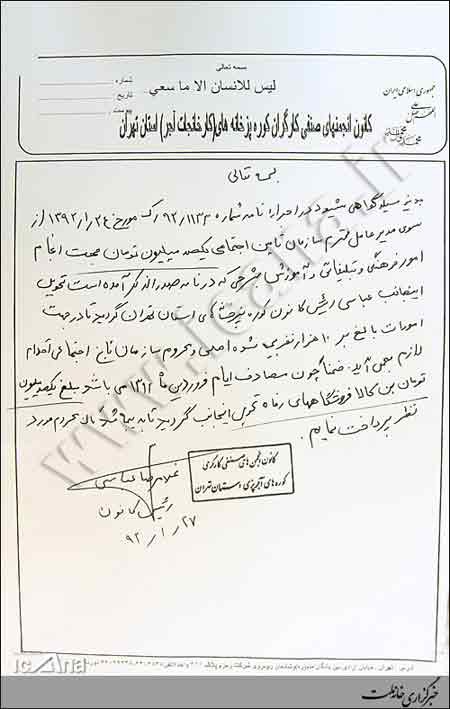 بسمه تعالی
لیس للانسان الا ما سعی
جمهوری اسلامی ایران
شماره :
تاریخ :
پیوست :
کانون انجمنهای صنفی کارگران کوره پزخانه های (کارخانجات آجر) استان تهران
بسمه تعالی
بدینوسیله گواهی میشود در اجرای نامه شماره ۹۲/۱۱۳۳ مورخ ۱۳۹۲/۱/۲۴ از
سوی مدیر عامل محترم سازمان تامین اجتماعی یکصد میلیون تومان جهت انجام
امور فرهنگی و تبلیغاتی و آموزش بشرحی که در نامه صدرالذکر آمده است تحویل
اینجانب عباسی رئیس کانون کوره پزخانه های استان تهران گردید تا در جهت
امورات بالغ بر ۱۰ هزار نفر بیمه شده اصلی و محروم سازمان تامین اجتماعی اقدام
لازم بعمل آید. ضمناً چون مصادف ایام فروردین ماه می باشد مبلغ یکصد میلیون
تومان بن کالا فروشگاههای رفاه تحویل اینجانب گردید تا به بیمه شدگان محروم مورد
نظر پرداخت نمایم.
کانون انجمن های صنفی کارگری
کوره های آجرپزی استان تهران
غلامرضا عباسی
رئیس کانون
۹۲/۱/۲۷
www.icana.ir
icana
خبرگزاری خانه ملت